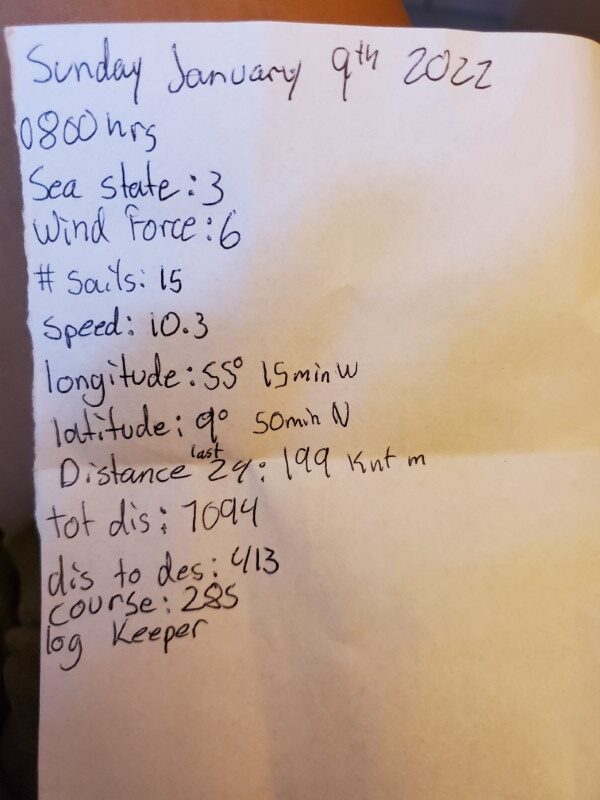 Sunday January 9th 2022
0800 hrs
Sea state: 3
Wind Force: 6
# Sails: 15
Speed: 10.3
longitude: 55° 15min W
latitude: 9° 50min N
Distance last 24: 199 Knt m
tot dis: 7094
dis to des: 413
course: 285
log Keeper